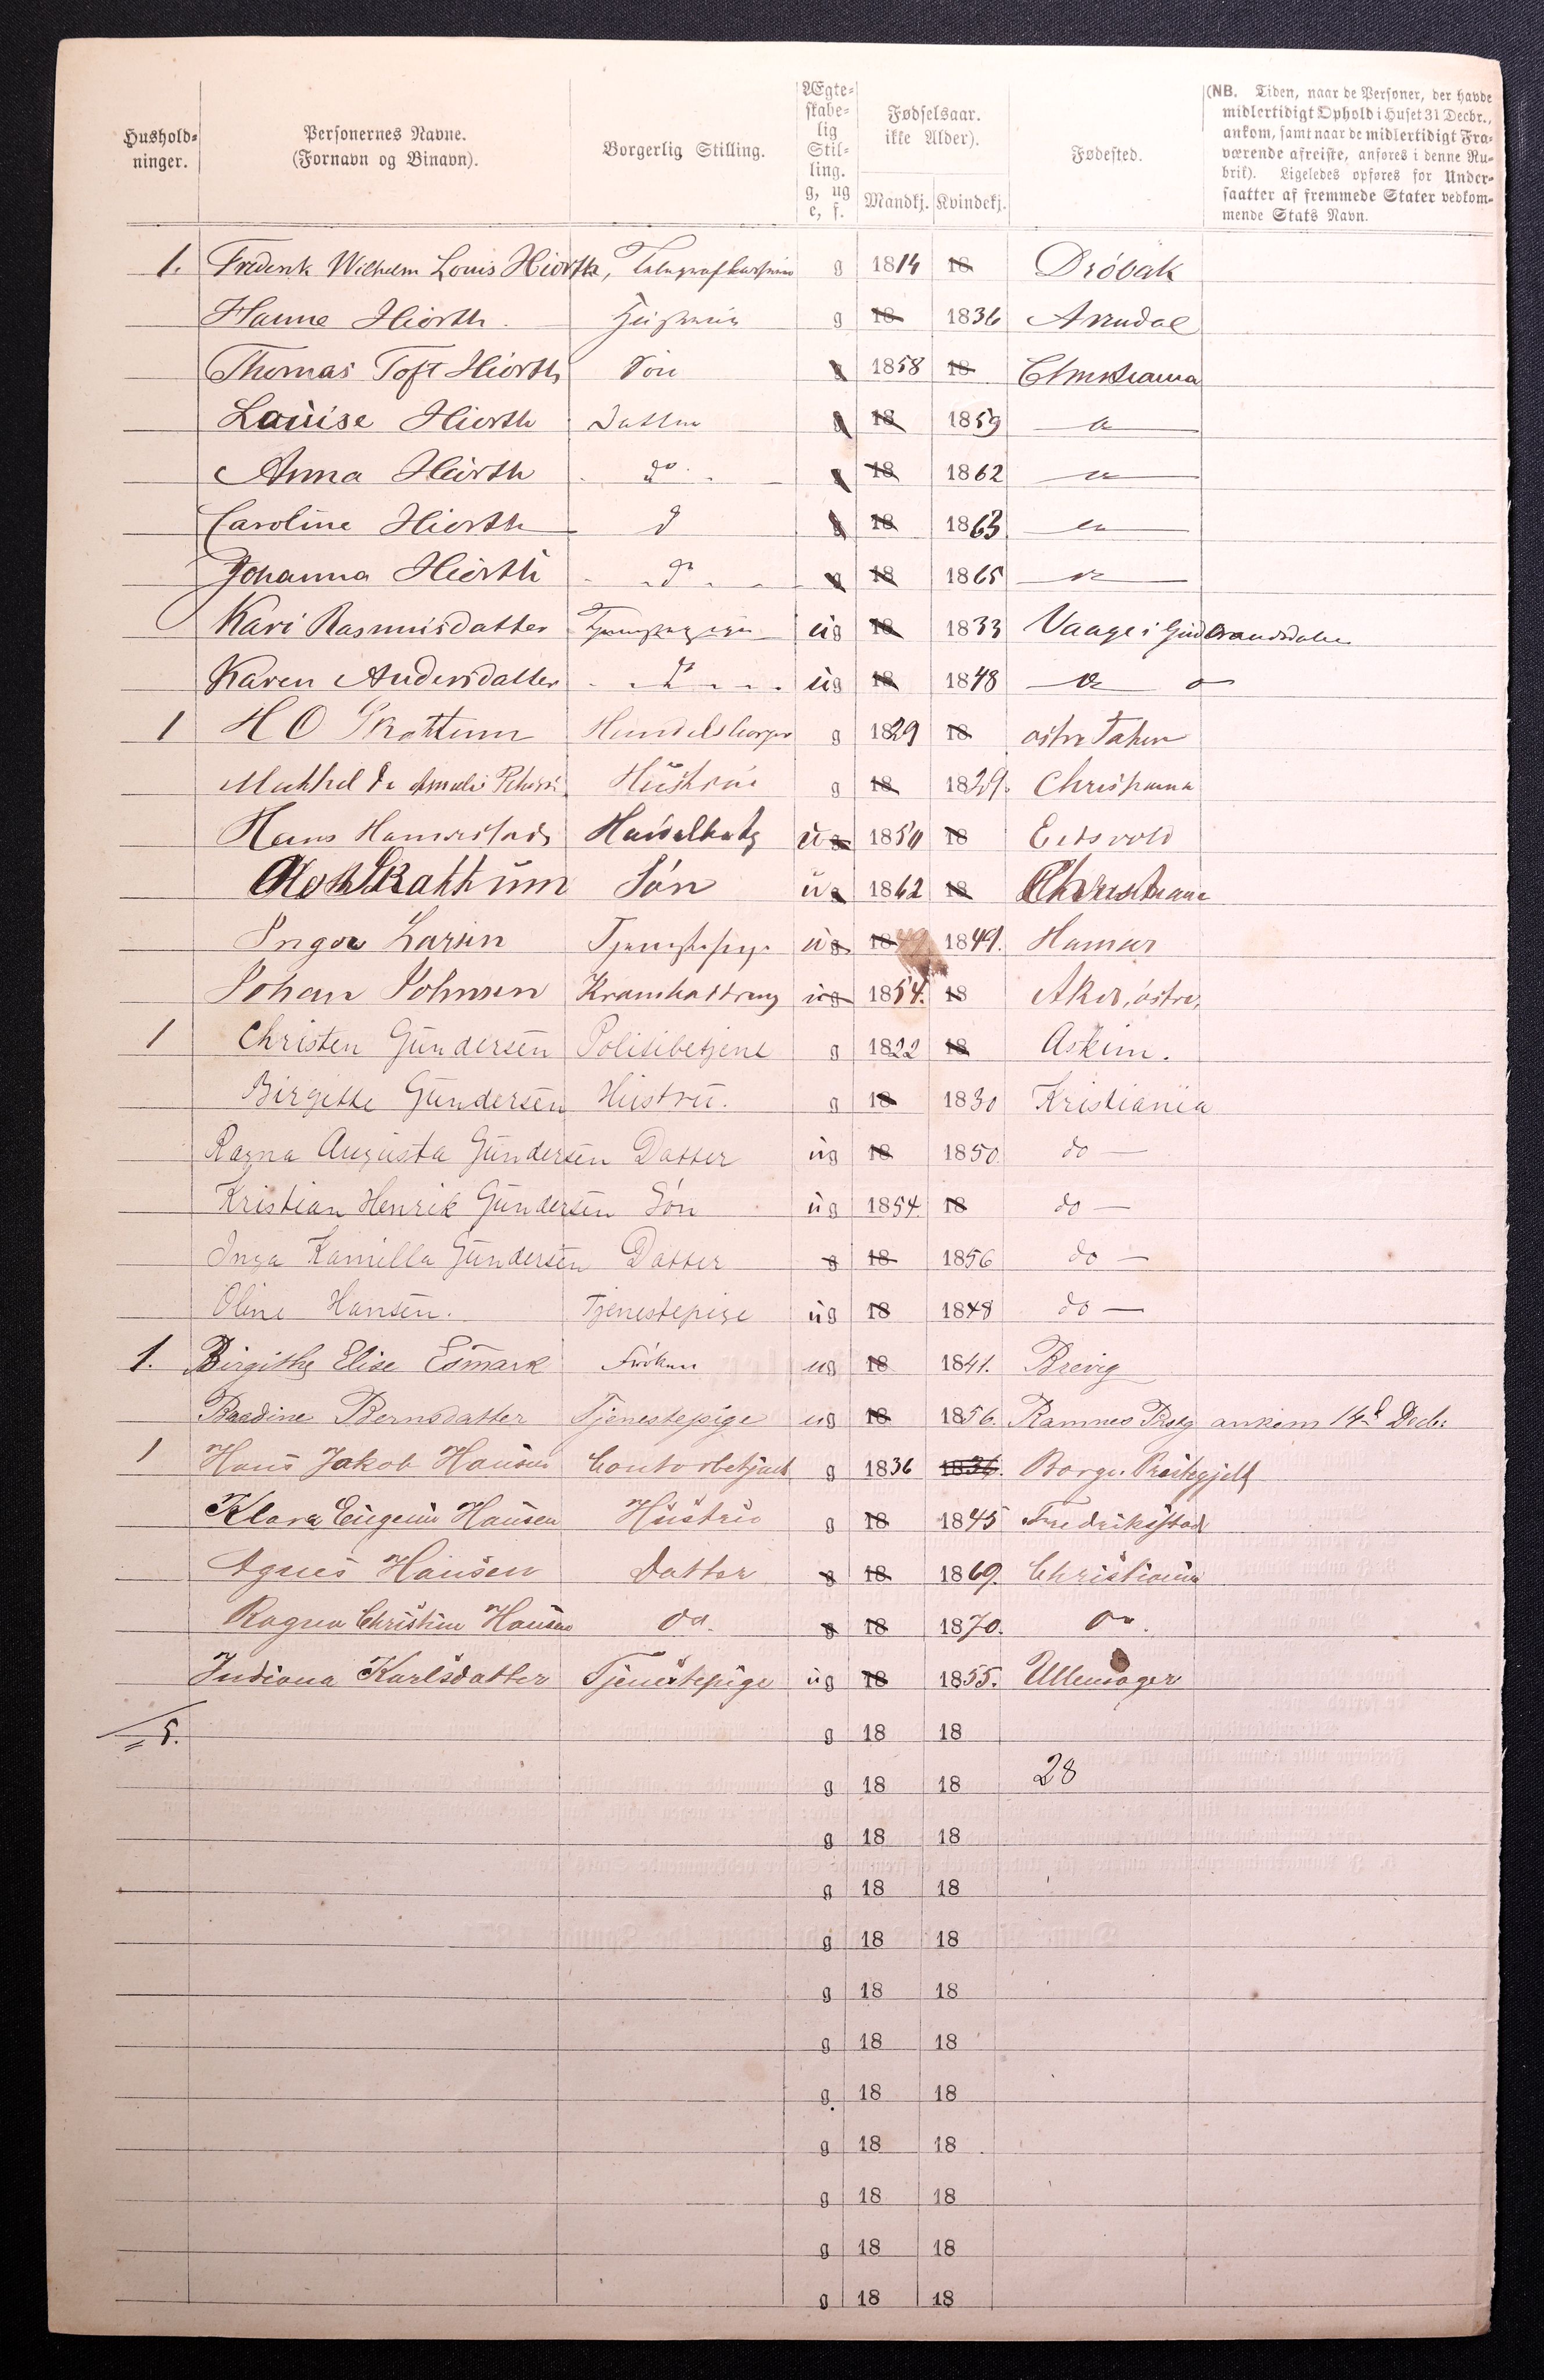 Hushold-
ninger.
Personernes Navne.
(Fornavn og Binavn).
Borgerlig Stilling.
Ægte-
skabe-
lig
Stil-
ling.
g, ug
e, f.
Fødselsaar.
ikke Alder).
Mandkj. Kvindekj.
Fødested.
(NB. Tiden, naar de Personer, der havde
midlertidigt Ophold i Huset 31 Decbr.,
ankom, samt naar de midlertidigt Fra-
værende afreiste, anføres i denne Ru-
brik). Ligeledes opføres for Under-
saatter af fremmede Stater vedkom-
mende Stats Navn.
1. Frederik Wilhelm Louis Hiorth, g 1814 18 Dröbak
Hanne Hiorth. g 18 1836 Arendal
Thomas Toft Hiorth Sön g 1858 18 Christiania
Louise Hiorth Datter g 18 1859
Anna Hiorth do. g 18 1862
Caroline Hiorth d g 18 1863
Johanna Hiorth do g 18 1865
Kari Rasmusdatter Tjenestepige ug 18 1833 Vaage i Gudbrandsdalen
Karen Andersdatter do ug 18 1848
1 H O Skattum Handelsborger g 1829 18 østre Toten
Hüstrü g 18 1829. Christiania
Hans ug 1850 18 Eidsvold
Skattum Sön ug 1862 18 Christiania
Inga Larsen Tjenestepige ug 1849 1849. Hamar
Johan Johnsen ug 1854. 18 Aker, østre,
1 Christen Gündersen Politibetjent g 1822 18 Askim.
Birgitte Gündersen Hüstrü. g 18 1830 Kristiania
Ragna Augusta Gündersen Datter ug 18 1850 do —
Kristian Henrik Gündersen Sön ug 1854. 18 do —
Inga Kamilla Gündersen Datter g 18 1856 do —
Oline Hansen. Tjenestepige ug 18 1848 do —
1. Birgithe Elise Esmark Fröken ug 18 1841. Brevig
Baadine Bernsdatter Tjenestepige ug 18 1856. Ramnes Prstg ankom 14d Decbr
1 Hans Jakob Hansen Contorbetjent g 1836 1836. Borge Præstegjeld
Klara Eugenie Hansen Hüstrü g 18 1845 Fredrikstad
Agnes Hansen Datter g 18 1869. Christiania
Ragna Christine Hansen do. g 18 1870. do.
Indiana Karlsdatter Tjenestepige ug 18 1855. Ullensager
5. g 18 18
g 18 18 28
g 18 18
g 18 18
g 18 18
g 18 18
g 18 18
g 18 18
g 18 18
g 18 18
g 18 18
g 18 18